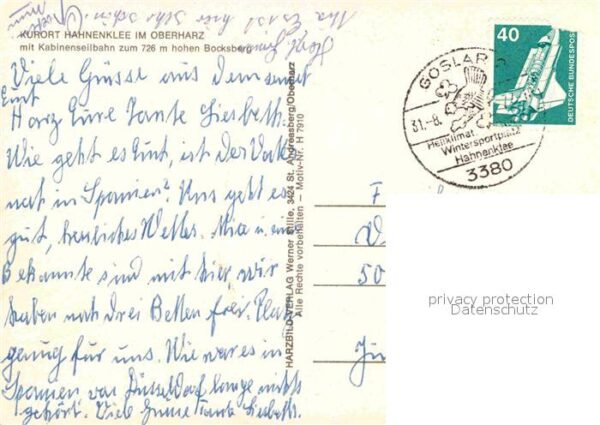 KURORT HAHNENKLEE IM OBERHARZ
mit Kabinenseilbahn zum 726 m hohen Bocksberg
Viele Grüsse aus dem
Harz Eure Tante Liesbeth.
Wie geht es Euch, ist der Vater
noch in Spanien? Uns geht es
gut, herrliches Wetter. Mia u. eine
Bekannte sind mit hier wir
haben noch drei Betten frei. Platz
genug für uns. Wie war es in
Spanien von Düsseldorf lange nichts
gehört. Viele Grüsse Tante Liesbeth.
HARZBILD-VERLAG Werner Stille, 3424 St. Andreasberg/Oberharz
Alle Rechte vorbehalten — Motiv-Nr. H 7910
40
DEUTSCHE BUNDESPOST
GOSLAR
31.-8.
Heilklimat.
Wintersportplatz
Hahnenklee
3380
F
50
privacy protection
Datenschutz